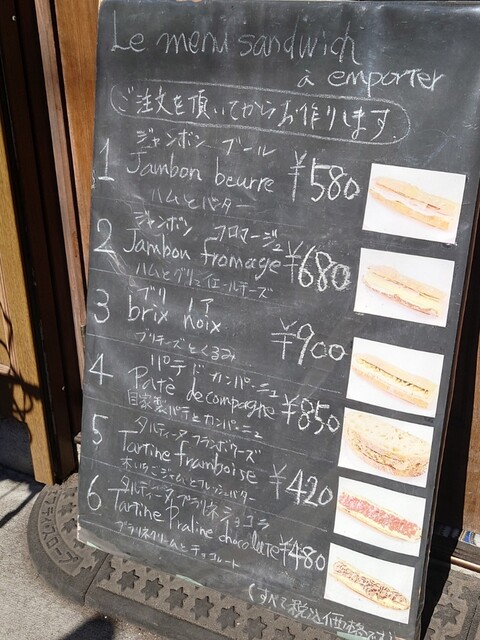 Le menu sandwich
à emporter
ご注文を頂いてからお作りします。
ジャンボン ブール
1 Jambon beurre ¥580
ハムとバター
ジャンボン フロマージュ
2 Jambon fromage ¥680
ハムとグリュイエールチーズ
ブリ ノア
3 brix noix ¥900
ブリチーズとくるみ
パテ ド カンパーニュ
4 Paté de compagne ¥850
自家製パテとカンパーニュ
タルティーヌ フランボワーズ
5 Tartine framboise ¥420
木いちごジャムとフレッシュバター
タルティーヌ プラリネ ショコラ
6 Tartine Praline chocolate ¥480
プラリネクリームとチョコレート
(すべて税込価格です)